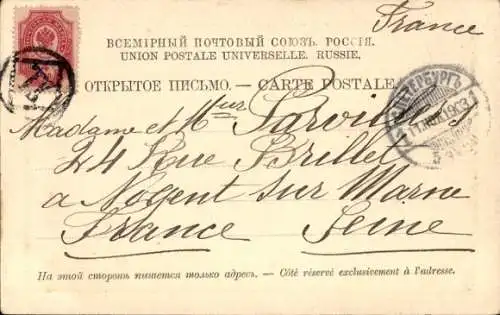 France
ВСЕМІРНЫЙ ПОЧТОВЫЙ СОЮЗЪ. РОССІЯ.
UNION POSTALE UNIVERSELLE. RUSSIE.
ОТКРЫТОЕ ПИСЬМО. — CARTE POSTALE.
Madame et Mr
24 Rue Brillet
a Nogent sur Marne
France Seine
На этой сторонѣ пишется только адресъ. — Côté réservé exclusivement à l'adresse.
1903